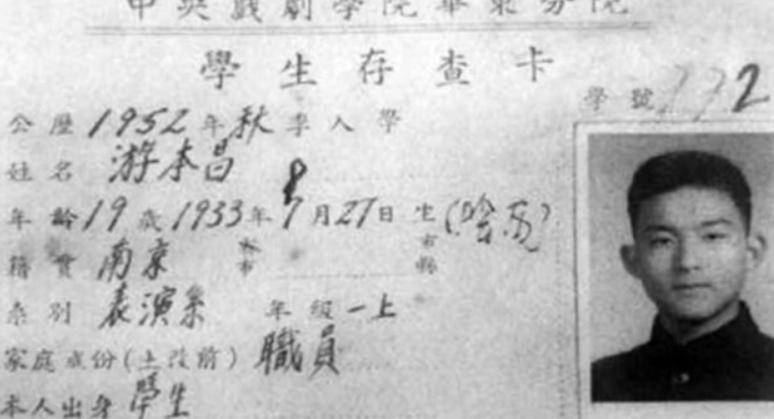 中央戲劇學院華東分院
學生存查卡
學號 772
公歷1952年秋季入學
姓名 游本昌
年齡19歲1933年8月27日生(陰历)
籍貫 南京 市 市縣
系別 表演系 年級 一上
家庭成份(土改前) 職員
本人出身 學生